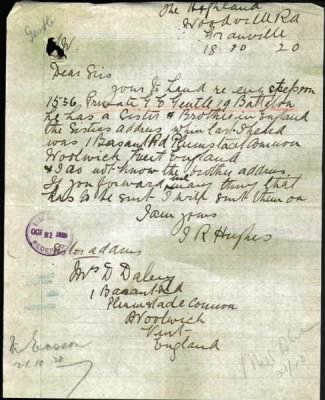 Gentle
The Highland
Woodville Rd
Granville
18 10 20
Dear Sir
yours to hand re my stepson
1556, Private G F Gentle 19 Battalion
he has a Sister & Brother in England
the Sisters address when last I held
was 1 Basant Rd Plumstade Common
Woolwich Kent England
& I do not know the brother address.
If you forward me any thing that
has to be sent I will sent them on
I am yours
J R Hughes
OCT 21 1920
Sister address
Mrs D Daley
1 Basant Rd
Plumstade Common
Woolwich
Kent
England
21.10.20